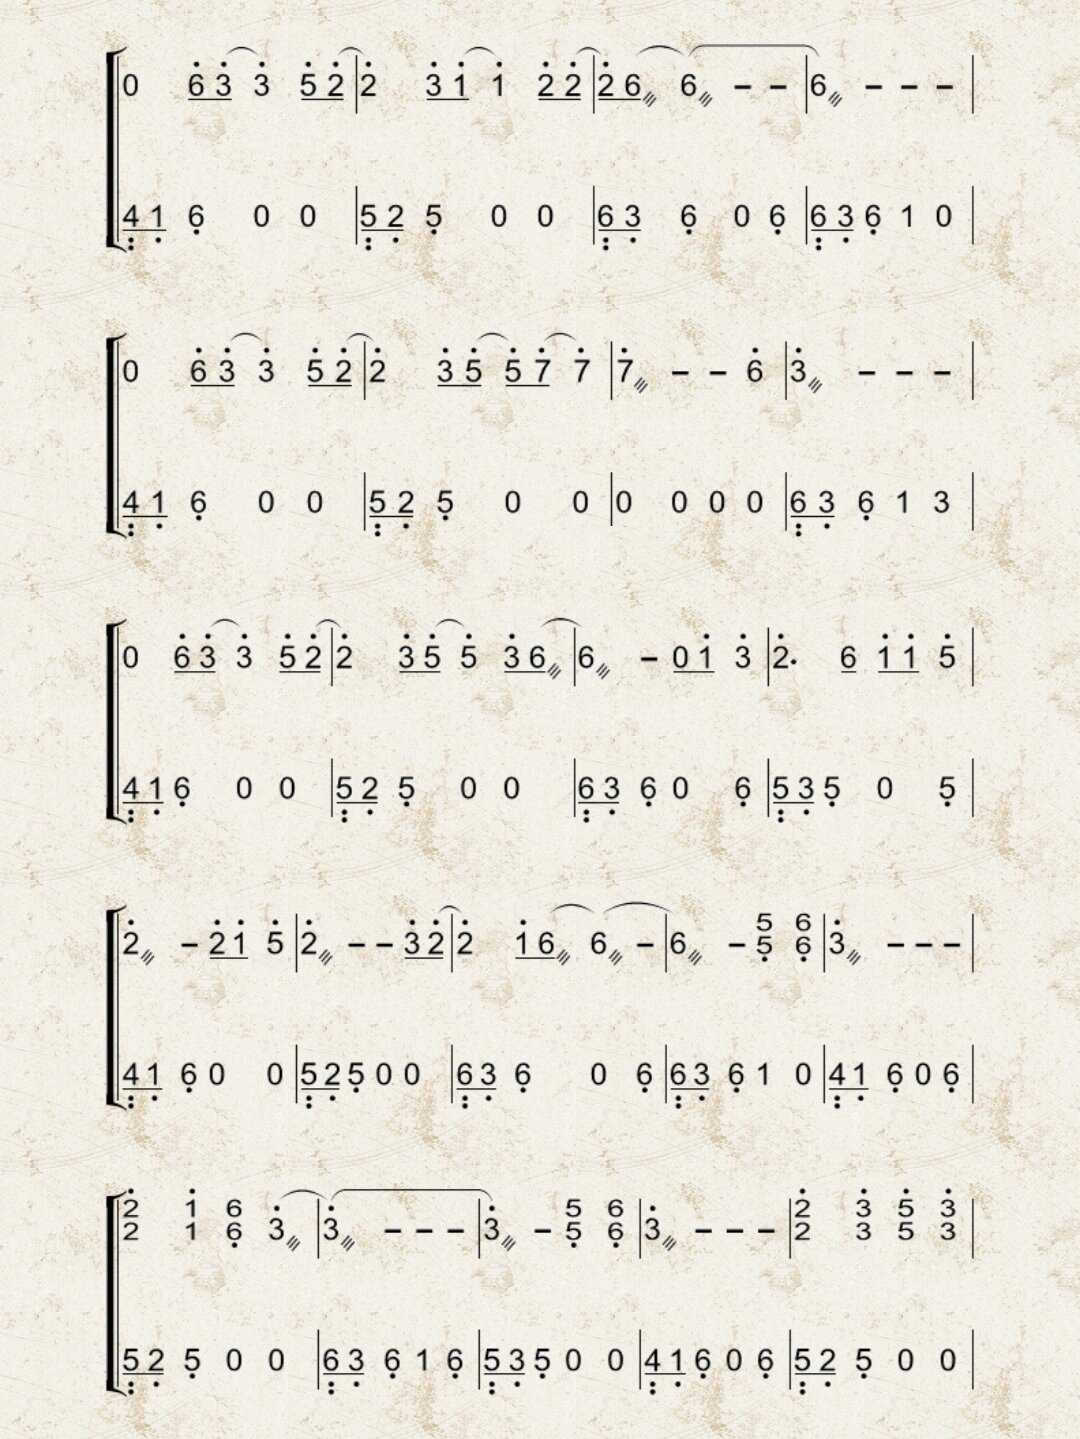 0 6̲̇ 3̲̇ 3̇ 5̲̇ 2̲̇ | 2̇ 3̲̇ 1̲̇ 1̇ 2̲̇ 2̲̇ | 2̲̇ 6̲⫽ 6⫽ – – | 6⫽ – – – |
4̲̤ 1̲̣ 6̣ 0 0 | 5̲̤ 2̲̣ 5̣ 0 0 | 6̲̤ 3̲̣ 6̣ 0 6̣ | 6̲̤ 3̲̣ 6̣ 1 0 |
0 6̲̇ 3̲̇ 3̇ 5̲̇ 2̲̇ | 2̇ 3̲̇ 5̲̇ 5̲̇ 7̲̇ 7̇ | 7̇⫽ – – 6̇ | 3̇⫽ – – – |
4̲̤ 1̲̣ 6̣ 0 0 | 5̲̤ 2̲̣ 5̣ 0 0 | 0 0 0 0 | 6̲̤ 3̲̣ 6̣ 1 3 |
0 6̲̇ 3̲̇ 3̇ 5̲̇ 2̲̇ | 2̇ 3̲̇ 5̲̇ 5̇ 3̲̇ 6̲⫽ | 6⫽ – 0̲ 1̲̇ 3̇ | 2̇· 6̲ 1̲̇ 1̲̇ 5̇ |
4̲̤ 1̲̣ 6̣ 0 0 | 5̲̤ 2̲̣ 5̣ 0 0 | 6̲̤ 3̲̣ 6̣ 0 6̣ | 5̲̤ 3̲̣ 5̣ 0 5̣ |
5 6
2̇⫽ – 2̲̇ 1̲̇ 5̇ | 2̇⫽ – – 3̲̇ 2̲̇ | 2̇ 1̲̇ 6̲⫽ 6⫽ – | 6⫽ – 5̣ 6̣ | 3̇⫽ – – – |
4̲̤ 1̲̣ 6̣ 0 0 | 5̲̤ 2̲̣ 5̣ 0 0 | 6̲̤ 3̲̣ 6̣ 0 6̣ | 6̲̤ 3̲̣ 6̣ 1 0 | 4̲̤ 1̲̣ 6̣ 0 6̣ |
2̇ 1̇ 6 5 6 2̇ 3̇ 5̇ 3̇
2 1 6̣ 3̇⫽ | 3̇⫽ – – – | 3̇⫽ – 5̣ 6̣ | 3̇⫽ – – – | 2 3 5 3 |
5̲̤ 2̲̣ 5̣ 0 0 | 6̲̤ 3̲̣ 6̣ 1 6̣ | 5̲̤ 3̲̣ 5̣ 0 0 | 4̲̤ 1̲̣ 6̣ 0 6̣ | 5̲̤ 2̲̣ 5̣ 0 0 |